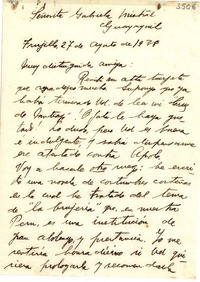 3506
Señorita Gabriela Mistral
Guayaquil
Trujillo 27 de Agosto de 1938
Muy distinguida amiga:
Recibí su alta tarjeta
que agradezco mucho. Supongo que ya
habrá terminado Ud. de leer mi
de Santiago. Ojalá le haya gus
tado! Lo dudo, pero Ud. es buena
e indulgente, y sabrá dispensarme
ese atentado contra Apolo.
Voy a hacerle otro ruego: he escri
to una novela de costumbres
en la cual he tratado del tema
de "la brujería" que, en nuestro
Perú, es una institución de
gran abolengo y prestancia. Yo me
sentiría honradísimo si Ud. qui
siera prologarla y recomendarla